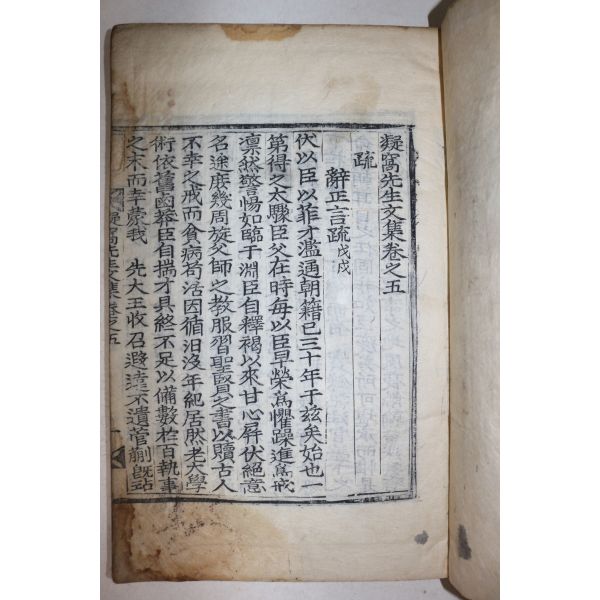 凝窩先生文集卷之五
疏
辭正言疏戊戌
伏以臣以菲才濫通朝籍已三十年于玆矣始也一
第得之太驟臣父在時每以臣早榮爲懼躁進爲戒
凛然警惕如臨于淵臣自釋褐以來甘心屛伏絕意
名途庶幾周旋父師之教服習聖賢之書以贖古人
不幸之戒而貪病苟活因循汨沒年紀居然老大學
術依舊鹵莽臣自揣才具終不足以備數於百執事
之末而幸蒙我 先大王收召遐遠不遺菅蒯旣玷
凝窩先生文集卷之五
一